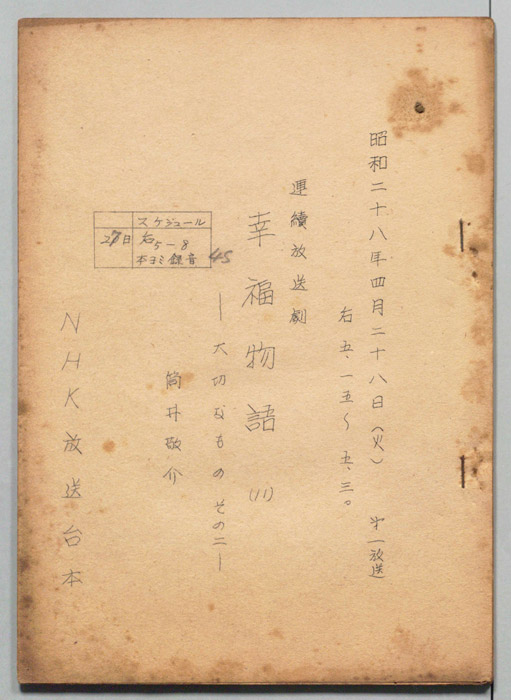 昭和二十八年四月二十八日(火) 才一放送
后五、一五〜五、三〇
連続放送劇
幸福物語 (八)
―大切なもの その二―
筒井敬介
スケジュール
27日 后5-8
本ヨミ録音
45
NHK放送台本